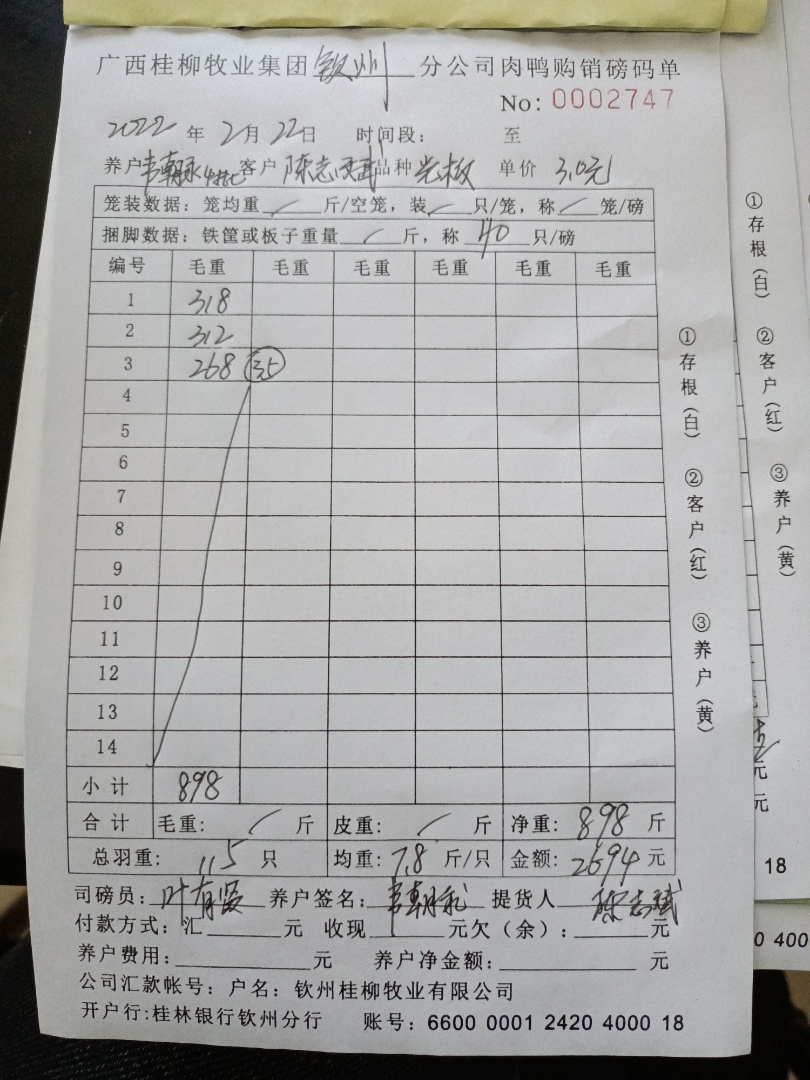 广西桂柳牧业集团钦州分公司肉鸭购销磅码单
No: 0002747
2022年2月22日 时间段： 至
养户 韦朝永 客户 陈志斌 品种 光板 单价 3.0元
笼装数据：笼均重 / 斤/空笼，装 / 只/笼，称 / 笼/磅
捆脚数据：铁筐或板子重量 / 斤，称 40 只/磅
编号 毛重 毛重 毛重 毛重 毛重 毛重
1 318
2 312
3 268 35
4
5
6
7
8
9
10
11
12
13
14
小计 898
合计 毛重： / 斤 皮重： / 斤 净重：898 斤
总羽重：115 只 均重：7.8 斤/只 金额：2694 元
司磅员： 养户签名：韦朝永 提货人 陈志斌
付款方式：汇 元 收现 元欠（余）： 元
养户费用： 元 养户净金额： 元
公司汇款帐号：户名：钦州桂柳牧业有限公司
开户行:桂林银行钦州分行 账号：6600 0001 2420 4000 18
①存根（白） ②客户（红） ③养户（黄）
①存根（白） ②客户（红） ③养户（黄）
元
元
18
0 400